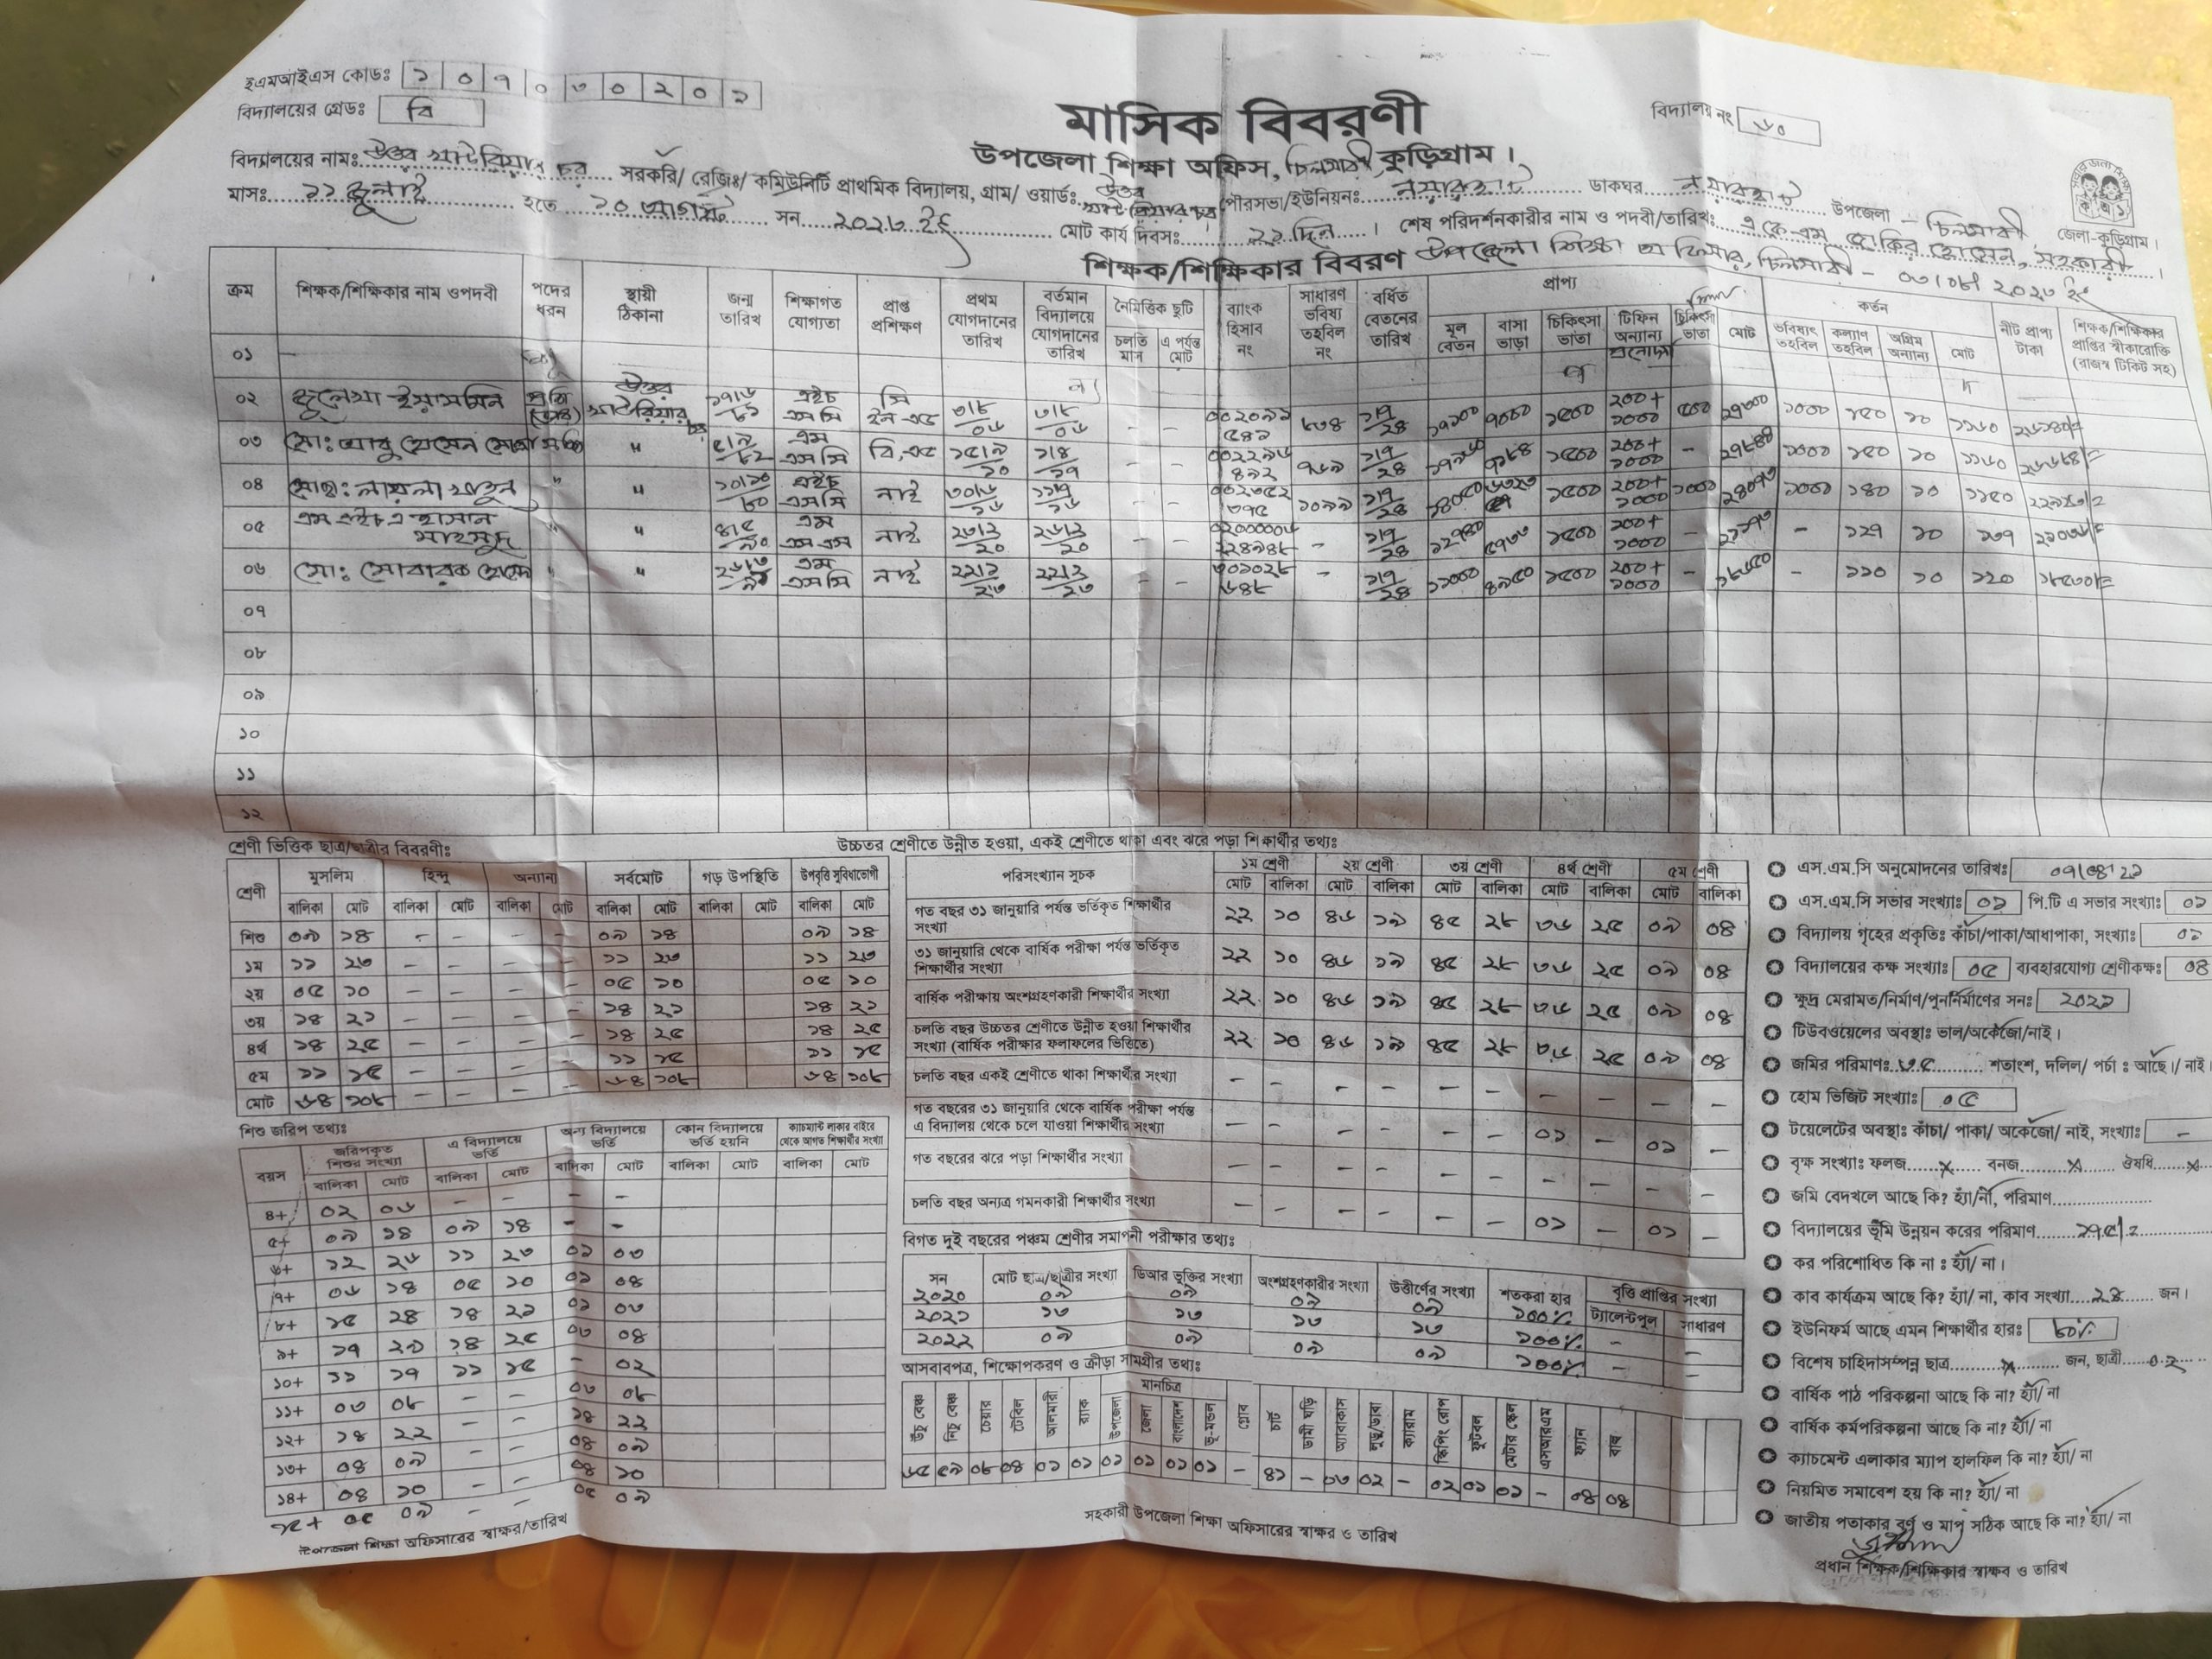 ইএমআইএস কোডঃ ১ ০ ৭ ০ ৩ ০ ২ ০ ১
বিদ্যালয়ের গ্রেডঃ বি
মাসিক বিবরণী
বিদ্যালয় নং ৬০
উপজেলা শিক্ষা অফিস, চিলমারী, কুড়িগ্রাম।
বিদ্যালয়ের নামঃ উত্তর খাটরিয়ার চর সরকরি/ রেজিঃ/ কমিউনিটি প্রাথমিক বিদ্যালয়, গ্রাম/ ওয়ার্ডঃ উত্তর খাটরিয়ার চর পৌরসভা/ইউনিয়নঃ নয়ারহাট ডাকঘর নয়ারহাট উপজেলা – চিলমারী জেলা-কুড়িগ্রাম।
মাসঃ ১১ জুলাই হতে ১০ আগস্ট সন ২০২৩ ইং মোট কার্য দিবসঃ ২১ দিন। শেষ পরিদর্শনকারীর নাম ও পদবী/তারিখঃ এ কে এম জাকির হোসেন, সহকারী
শিক্ষক/শিক্ষিকার বিবরণ উপজেলা শিক্ষা অফিসার, চিলমারী – ০৩/০৮/২০২৩ ইং
ক্রম শিক্ষক/শিক্ষিকার নাম ওপদবী পদের ধরন স্থায়ী ঠিকানা জন্ম তারিখ শিক্ষাগত যোগ্যতা প্রাপ্ত প্রশিক্ষণ প্রথম যোগদানের তারিখ বর্তমান বিদ্যালয়ে যোগদানের তারিখ নৈমিত্তিক ছুটি ব্যাংক হিসাব নং সাধারণ ভবিষ্য তহবিল নং বর্ধিত বেতনের তারিখ প্রাপ্য কর্তন নীট প্রাপ্য টাকা শিক্ষক/শিক্ষিকার প্রাপ্তির স্বীকারোক্তি (রাজস্ব টিকিট সহ)
চলতি মাস এ পর্যন্ত মোট মূল বেতন বাসা ভাড়া চিকিৎসা ভাতা টিফিন অন্যান্য চিকিৎসা ভাতা মোট ভবিষ্যৎ তহবিল কল্যাণ তহবিল অগ্রিম অন্যান্য মোট
০১ –
০২ জুলেখা ইয়াসমিন উত্তর খাটরিয়ার চর ১৭/৬/৮১ এইচ এস সি সি ইন এড ৩/৮/০৬ ৩/৮/০৬ – – ৮৩৪ ১/৭/২৪ ১৫০০ ২০০+১০০০ ৫০০ ১০০০ ১৫০ ১০ ১১৬০
০৩ মোঃ আবু হোসেন মোল্লা " এম এস সি বি,এড – – ৭৬৯ ১/৭/২৪ ১৫০০ ২০০+১০০০ – ১০০০ ১৫০ ১০ ১১৬০
০৪ মোছাঃ লায়লা খাতুন " " ১০/১০/৮০ এইচ এস সি নাই – – ১০৯৯ ১/৭/২৪ ১৫০০ ২০০+১০০০ ১০০০ ১০০০ ১৪০ ১০ ১১৫০
০৫ এম এইচ এ হাসান মাহমুদ " " ৪/৫/৯০ এম এস এস নাই ২৩/২/২০ ২৬/২/২০ – ১/৭/২৪ ১৫০০ ২০০+১০০০ – – ১২৭ ১০ ১৩৭
০৬ মোঃ মোবারক হোসেন " " এম এস সি নাই ২২/১/২৩ ২২/১/২৩ – – – ১/৭/২৪ ১১০০০ ৪৯৫০ ১৫০০ ২০০+১০০০ – ১৮৬৫০ – ১১০ ১০ ১২০ ১৮৫৩০/=
০৭
০৮
০৯
১০
১১
১২
শ্রেণী ভিত্তিক ছাত্র/ছাত্রীর বিবরণীঃ
শ্রেণী মুসলিম হিন্দু অন্যান্য সর্বমোট গড় উপস্থিতি উপবৃত্তি সুবিধাভোগী
বালিকা মোট বালিকা মোট বালিকা মোট বালিকা মোট বালিকা মোট বালিকা মোট
শিশু ০৯ ১৪ – – – – ০৯ ১৪ ০৯ ১৪
১ম ১১ ২৩ – – – – ১১ ২৩ ১১ ২৩
২য় ০৫ ১০ – – – – ০৫ ১০ ০৫ ১০
৩য় ১৪ ২১ – – – – ১৪ ২১ ১৪ ২১
৪র্থ ১৪ ২৫ – – – – ১৪ ২৫ ১৪ ২৫
৫ম ১১ ১৫ – – – – ১১ ১৫ ১১ ১৫
মোট ৬৪ ১০৮ – – – – ৬৪ ১০৮ ৬৪ ১০৮
শিশু জরিপ তথ্যঃ
বয়স জরিপকৃত শিশুর সংখ্যা এ বিদ্যালয়ে ভর্তি অন্য বিদ্যালয়ে ভর্তি কোন বিদ্যালয়ে ভর্তি হয়নি ক্যাচমেন্ট এলাকার বাইরে থেকে আগত শিক্ষার্থীর সংখ্যা
বালিকা মোট বালিকা মোট বালিকা মোট বালিকা মোট বালিকা মোট
৪+ ০২ ০৬ – – – –
৫+ ০৯ ১৪ ০৯ ১৪ – –
৬+ ১২ ২৬ ১১ ২৩ ০১ ০৩
৭+ ০৬ ১৪ ০৫ ১০ ০১ ০৪
৮+ ১৫ ২৪ ১৪ ২১ ০১ ০৩
৯+ ১৭ ২৯ ১৪ ২৫ ০৩ ০৪
১০+ ১১ ১৭ ১১ ১৫ – ০২
১১+ ০৩ ০৮ – – ০৩ ০৮
১২+ ১৪ ২২ – – ১৪ ২২
১৩+ ০৪ ০৯ – – ০৪ ০৯
১৪+ ০৪ ১০ – – ০৪ ১০
১৫+ ০৫ ০৯ – – ০৫ ০৯
উপজেলা শিক্ষা অফিসারের স্বাক্ষর/তারিখ
উচ্চতর শ্রেণীতে উন্নীত হওয়া, একই শ্রেণীতে থাকা এবং ঝরে পড়া শিক্ষার্থীর তথ্যঃ
পরিসংখ্যান সূচক ১ম শ্রেণী ২য় শ্রেণী ৩য় শ্রেণী ৪র্থ শ্রেণী ৫ম শ্রেণী
মোট বালিকা মোট বালিকা মোট বালিকা মোট বালিকা মোট বালিকা
গত বছর ৩১ জানুয়ারি পর্যন্ত ভর্তিকৃত শিক্ষার্থীর সংখ্যা ২২ ১০ ৪৬ ১৯ ৪৫ ২৮ ৩৬ ২৫ ০৯ ০৪
৩১ জানুয়ারি থেকে বার্ষিক পরীক্ষা পর্যন্ত ভর্তিকৃত শিক্ষার্থীর সংখ্যা ২২ ১০ ৪৬ ১৯ ৪৫ ২৮ ৩৬ ২৫ ০৯ ০৪
বার্ষিক পরীক্ষায় অংশগ্রহণকারী শিক্ষার্থীর সংখ্যা ২২ ১০ ৪৬ ১৯ ৪৫ ২৮ ৩৬ ২৫ ০৯ ০৪
চলতি বছর উচ্চতর শ্রেণীতে উন্নীত হওয়া শিক্ষার্থীর সংখ্যা (বার্ষিক পরীক্ষার ফলাফলের ভিত্তিতে) ২২ ১০ ৪৬ ১৯ ৪৫ ২৮ ৩৬ ২৫ ০৯ ০৪
চলতি বছর একই শ্রেণীতে থাকা শিক্ষার্থীর সংখ্যা – – – – – – – – – –
গত বছরের ৩১ জানুয়ারি থেকে বার্ষিক পরীক্ষা পর্যন্ত এ বিদ্যালয় থেকে চলে যাওয়া শিক্ষার্থীর সংখ্যা – – – – – – ০১ – ০১ –
গত বছরের ঝরে পড়া শিক্ষার্থীর সংখ্যা – – – – – – – – – –
চলতি বছর অন্যত্র গমনকারী শিক্ষার্থীর সংখ্যা – – – – – – ০১ – ০১ –
বিগত দুই বছরের পঞ্চম শ্রেণীর সমাপনী পরীক্ষার তথ্যঃ
সন মোট ছাত্র/ছাত্রীর সংখ্যা ডিআর ভুক্তির সংখ্যা অংশগ্রহণকারীর সংখ্যা উত্তীর্ণের সংখ্যা শতকরা হার বৃত্তি প্রাপ্তির সংখ্যা
ট্যালেন্টপুল সাধারণ
২০২০ ০৯ ০৯ ০৯ ০৯ ১০০%
২০২১ ১৩ ১৩ ১৩ ১৩ ১০০% – –
২০২২ ০৯ ০৯ ০৯ ০৯ ১০০% – –
আসবাবপত্র, শিক্ষোপকরণ ও ক্রীড়া সামগ্রীর তথ্যঃ
মানচিত্র
উঁচু বেঞ্চ নিচু বেঞ্চ চেয়ার টেবিল আলমারী র‍্যাক উপজেলা জেলা বাংলাদেশ ভূ-মন্ডল গ্লোব চার্ট ডামী ঘড়ি অ্যাবাকাস লুডু/ডাবা ক্যারাম স্কিপিং রোপ ফুটবল মেটার স্কেল এসআরএম ফ্যান বাল্ব
৬৫ ৫৯ ০৮ ০৪ ০১ ০১ ০১ ০১ ০১ ০১ – ৪১ – ০৩ ০২ – ০২ ০১ ০১ – ০৪ ০৪
সহকারী উপজেলা শিক্ষা অফিসারের স্বাক্ষর ও তারিখ
এস.এম.সি অনুমোদনের তারিখঃ ০৭/০৪/২১
এস.এম.সি সভার সংখ্যাঃ ০১ পি.টি এ সভার সংখ্যাঃ ০১
বিদ্যালয় গৃহের প্রকৃতিঃ কাঁচা/পাকা/আধাপাকা, সংখ্যাঃ ০১
বিদ্যালয়ের কক্ষ সংখ্যাঃ ০৫ ব্যবহারযোগ্য শ্রেণীকক্ষঃ ০৪
ক্ষুদ্র মেরামত/নির্মাণ/পুনর্নির্মাণের সনঃ ২০২১
টিউবওয়েলের অবস্থাঃ ভাল/অকেজো/নাই।
জমির পরিমাণঃ ৩৫ শতাংশ, দলিল/ পর্চা : আছে।/ নাই।
হোম ভিজিট সংখ্যাঃ ০৫
টয়েলেটের অবস্থাঃ কাঁচা/ পাকা/ অকেজো/ নাই, সংখ্যাঃ –
বৃক্ষ সংখ্যাঃ ফলজ x বনজ x ঔষধি x
জমি বেদখলে আছে কি? হ্যাঁ/না, পরিমাণ
বিদ্যালয়ের ভূমি উন্নয়ন করের পরিমাণ ১৭৫/=
কর পরিশোধিত কি না : হ্যাঁ/ না।
কাব কার্যক্রম আছে কি? হ্যাঁ/ না, কাব সংখ্যা ২৪ জন।
ইউনিফর্ম আছে এমন শিক্ষার্থীর হারঃ ৮০%
বিশেষ চাহিদাসম্পন্ন ছাত্র x জন, ছাত্রী ০২
বার্ষিক পাঠ পরিকল্পনা আছে কি না? হ্যাঁ/ না
বার্ষিক কর্মপরিকল্পনা আছে কি না? হ্যাঁ/ না
ক্যাচমেন্ট এলাকার ম্যাপ হালফিল কি না? হ্যাঁ/ না
নিয়মিত সমাবেশ হয় কি না? হ্যাঁ/ না
জাতীয় পতাকার বর্ণ ও মাপ সঠিক আছে কি না? হ্যাঁ/ না
প্রধান শিক্ষক/শিক্ষিকার স্বাক্ষর ও তারিখ